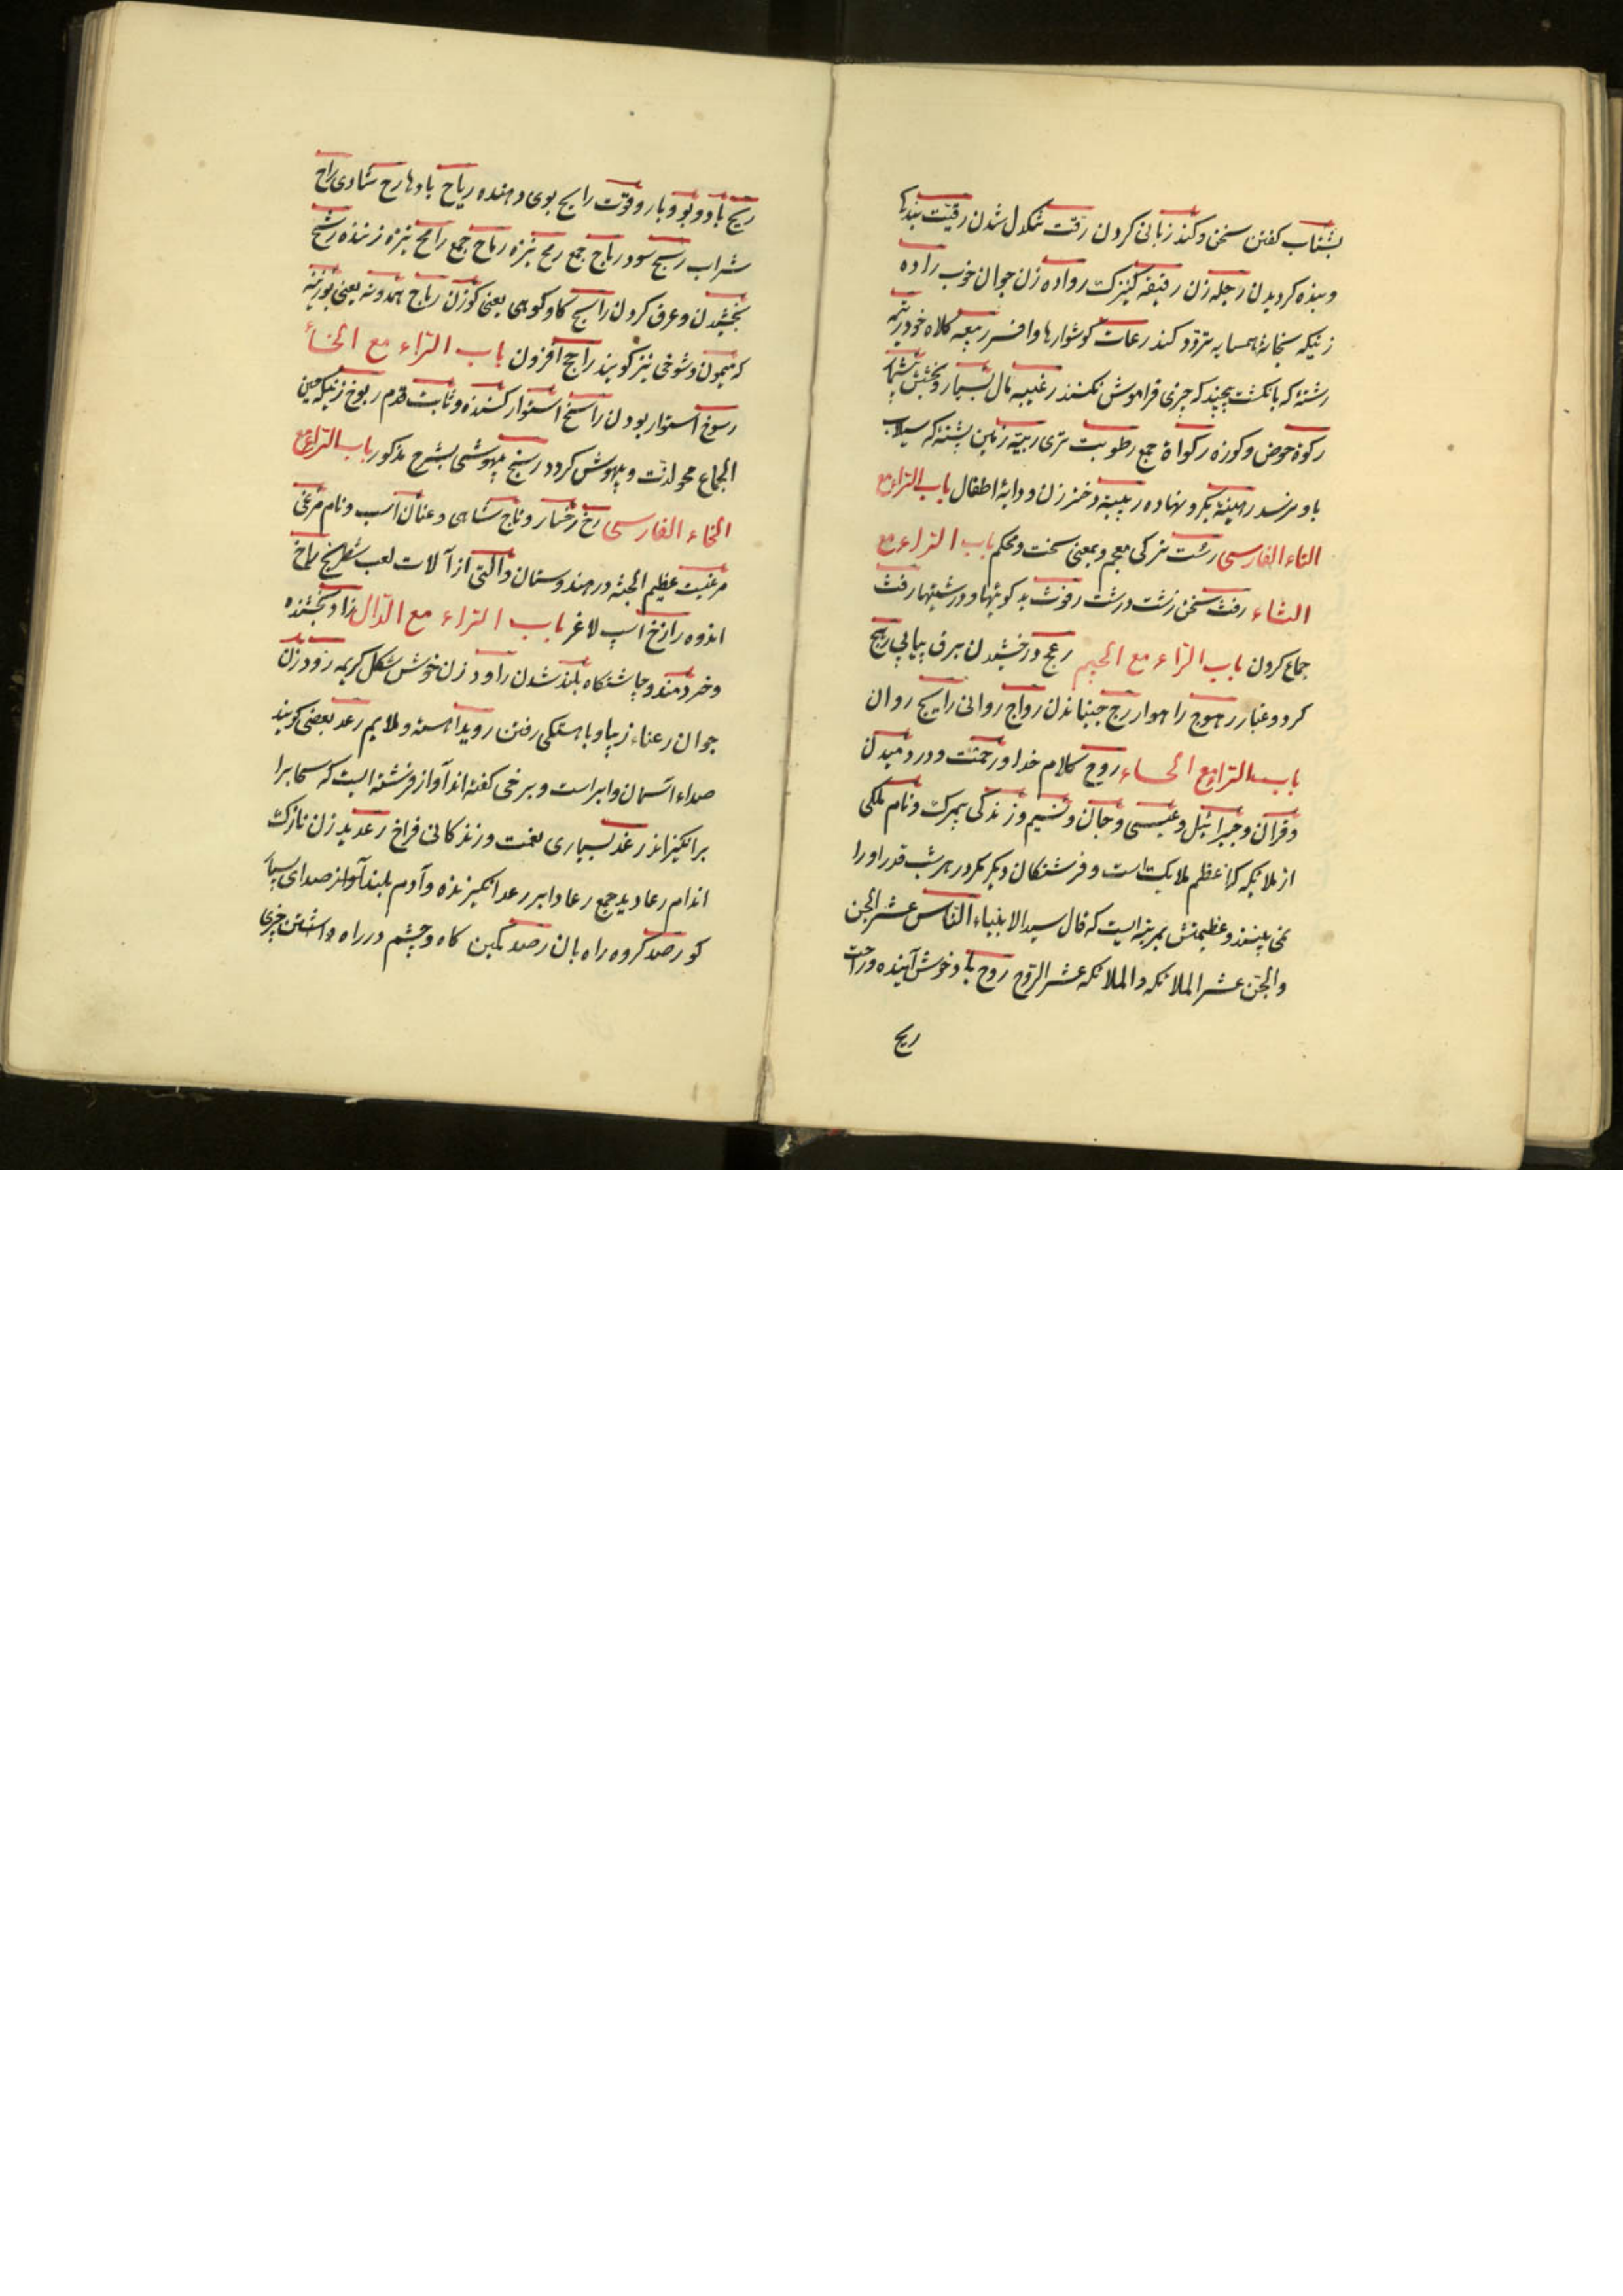 بشتاب کفتن سخن و کند زبانی کردن رقت تنکدل شدن رقیت بندکی
و بنده کردیدن رجله زن رفیقه کنیزک رواده زن جوان خوب راده
زنیکه بخانهٔ همسایه تردد کند رعات کوشوارها و افسر رمعه کلاه خود رتمه
رشتهٔ که بانکشت پیچند که چیزی فراموش نکنند رغیبه مال بسیار و بخشش
رکوة حوض و کوزه رکواة جمع رطوبت تری ربیّه زمین پشته که سیلاب
باو نرسد رهینه بکرو نهاده ربیبه دختر زن و دایهٔ اطفال باب الراء مع
التاء الفارسی رشت ترکی معجم و بمعنی سخت و محکم باب الراء مع
الثاء رفث سخن زشت درشت رفوث بد کوئیها و درشتیها رفث
جماع کردن باب الراء مع الجیم رعج درخشیدن برق پیاپی رهج
کرد و غبار رهوج راهوار رج جنباندن رواج روانی رایج روان
باب الراء مع الحاء روح کلام خدا و رحمت و در دمیدن
و قرآن و جبرائیل و عیسی و جان و نسیم و زندکی بیمرک و نام ملکی
از ملائکه که اعظم ملایک است و فرشتکان دیکر مکر در هر شب قدر او را
نمی بینند و عظیمتش بمرتبه ایست که قال سید الانبیاء الناس عشر الجن
والجن عشر الملائکه والملائکه عشر الروح روح باد خوش آینده و راحت
ریح
ریح باد و بو و بار و قوت رایح بوی دهنده ریاح بادها رح شادی راح
شراب ربح سود رماح جمع رمح نیزه رماح جمع رامح نیزه زننده رشح
بخشیدن و عرق کردن راشح کاو کوهی یعنی کوزن رباح همدونه یعنی بوزینه
که میمون و شوخی نیز کویند راجح افزون باب الراء مع الخاء
رسوخ استوار بودن راسخ استوار کننده و ثابت قدم ربوخ زنیکه حین
الجماع محو لذت و بیهوش کردد ربیخ بیهوشی بشرح مذکور باب الراء مع
الخاء الفارسی رخ رخسار و تاج شاهی و عنان اسب و نام مرغی
مرغیست عظیم الجثه در هندوستان و آلتی از آلات لعب شطرنج راخ
اندوه رازخ اسپ لاغر باب الراء مع الدال راد بخشنده
و خردمند و چاشتکاه بلند شدن راود زن خوش شکل کریه رود زن
جوان رعناء زیبا و باهستکی رفتن روید آهسته و ملایم رعد بعضی کویند
صداء آسمان و ابر است و برخی کفته اند آواز فرشته ایست که سحابرا
برانکیزاند رغد بسیاری نعمت و زندکانی فراخ رعدید زن نازک
اندام رعادید جمع رعاد ابر رعد انکیزنده و آدم بلند آواز صدای بسیار
کو رصد کروه راه بان رصد کمین کاه و چشم در راه داشتن چیزی